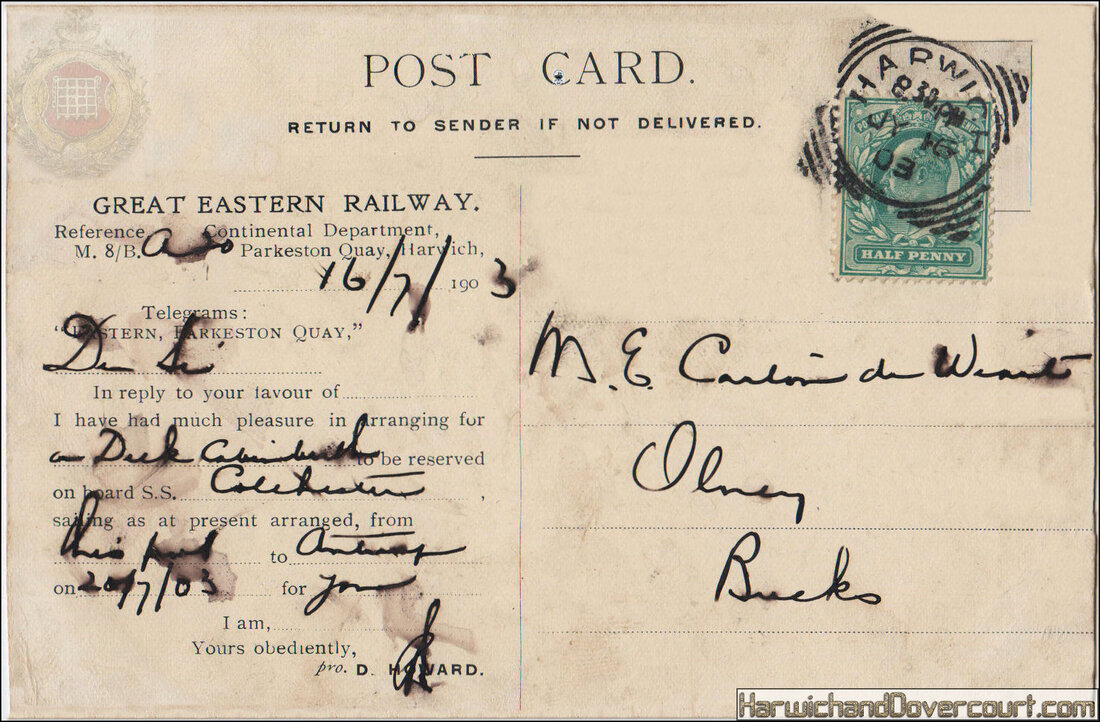 POST CARD.
RETURN TO SENDER IF NOT DELIVERED.
HARWICH
8 30 PM
JY 16
03
HALF PENNY
GREAT EASTERN RAILWAY.
Reference Continental Department,
M. 8/B. Parkeston Quay, Harwich,
16/7/ 1903
Telegrams:
"EASTERN, PARKESTON QUAY,"
Dear Sir
In reply to your favour of
I have had much pleasure in arranging for
a Deck Cabin berth to be reserved
on board S.S. Colchester,
sailing as at present arranged, from
this port to Antwerp
on 20/7/03 for you
I am,
Yours obediently,
pro. D. HOWARD.
M. E. Carton de Wiart
Olney
Bucks
HarwichandDovercourt.com